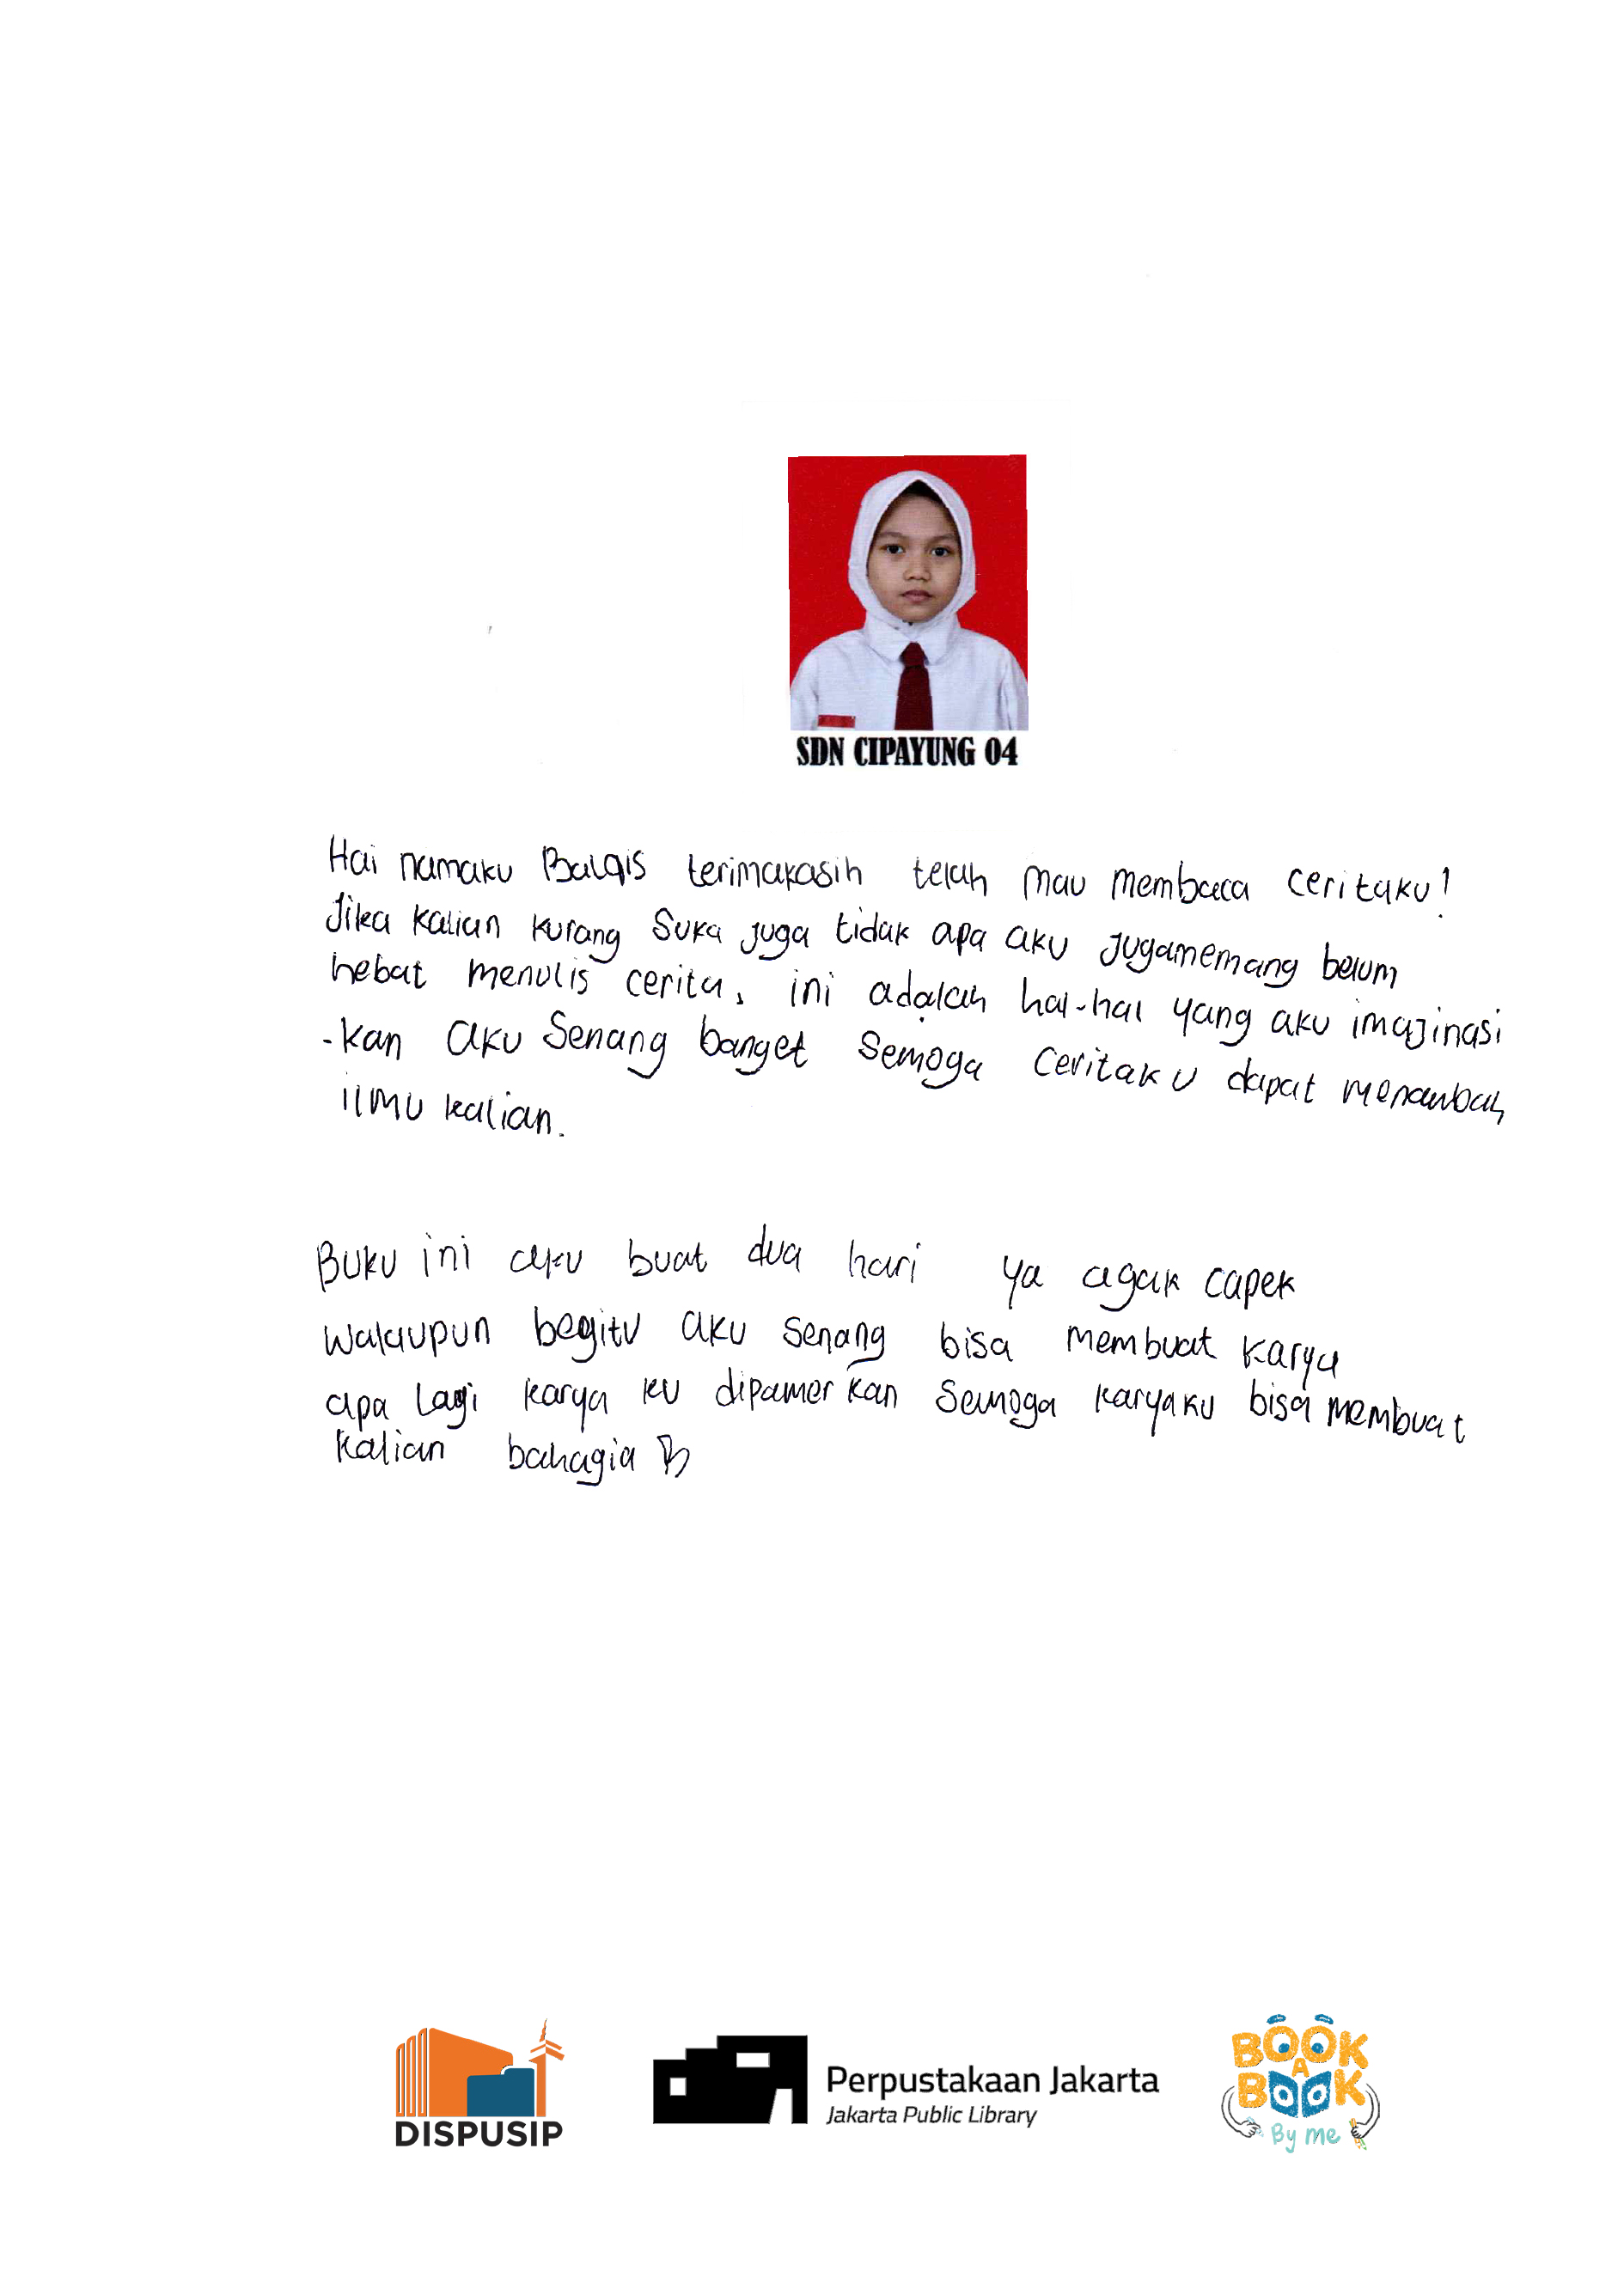 SDN CIPAYUNG 04
Hai namaku Balqis terimakasih telah mau membaca ceritaku!
Jika kalian kurang suka juga tidak apa aku jugamemang belum
hebat menulis cerita, ini adalah hal-hal yang aku imajinasi
-kan aku senang banget semoga ceritaku dapat menambah
ilmu kalian.
Buku ini aku buat dua hari ya agak capek
walaupun begitu aku senang bisa membuat karya
apa lagi karya ku dipamerkan semoga karyaku bisa membuat
kalian bahagia
DISPUSIP
Perpustakaan Jakarta
Jakarta Public Library
BOOK
A
BOOK
By me